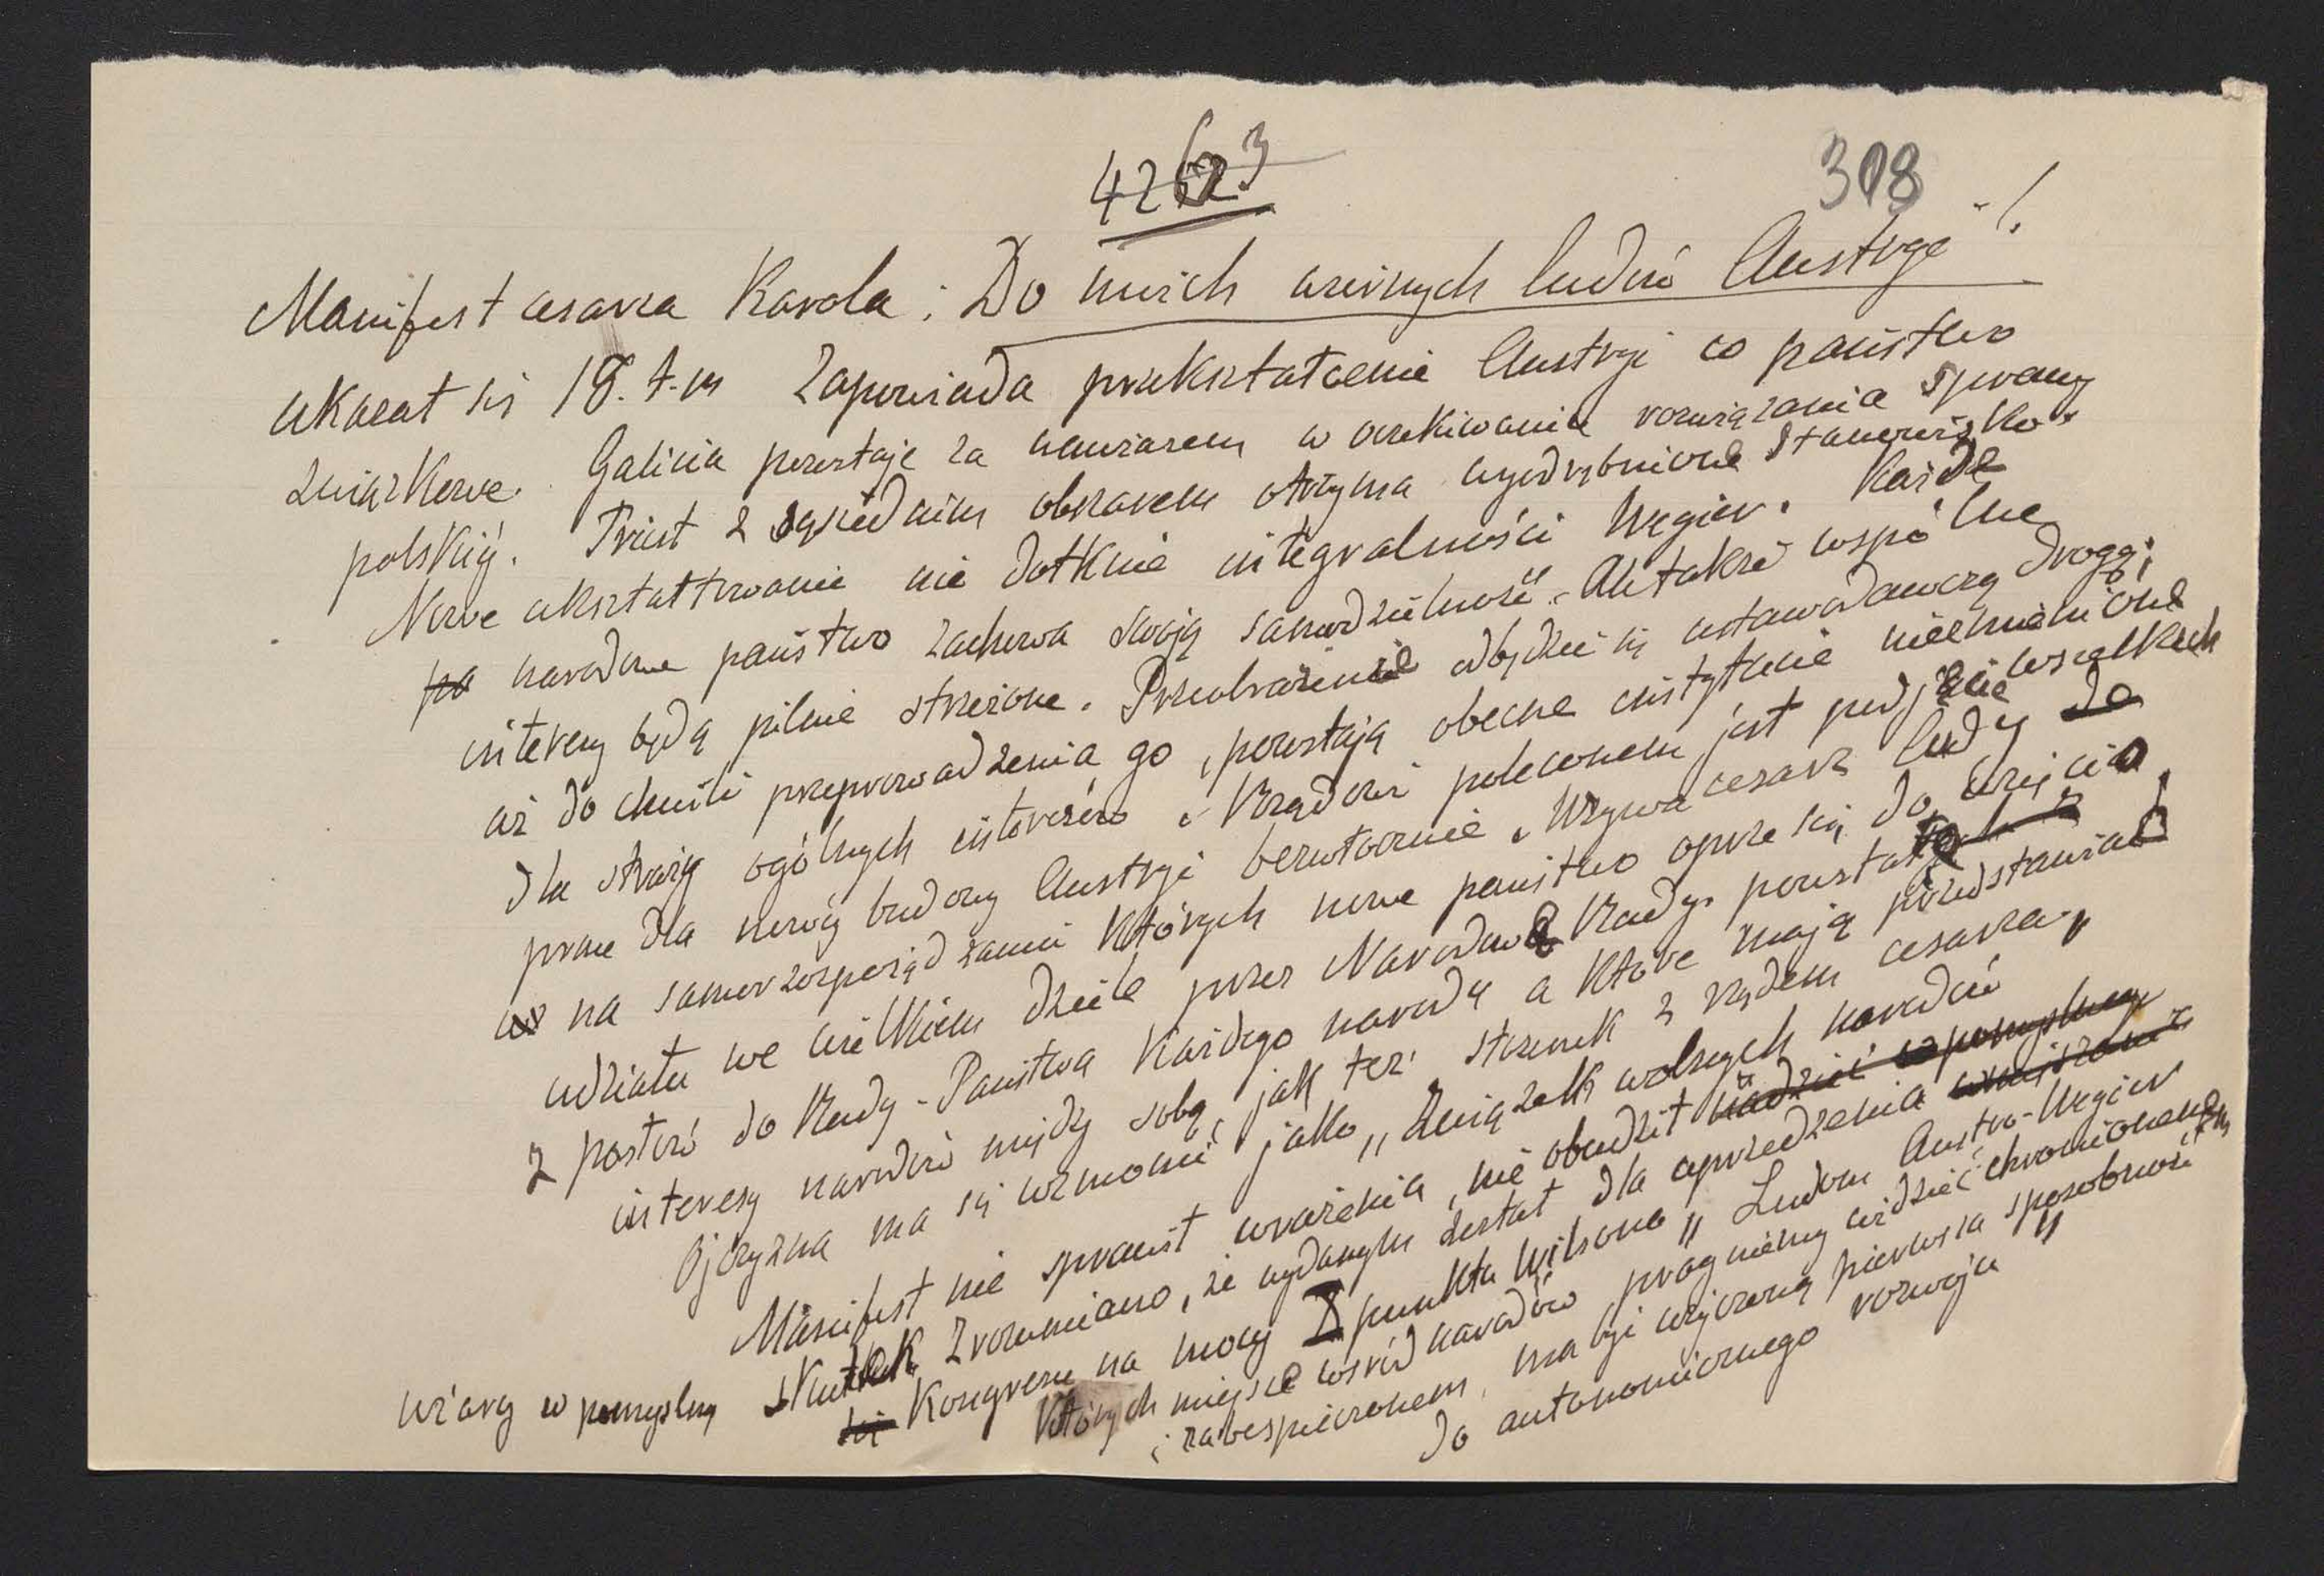 4263
308
Manifest cesarza Karola: Do moich wiernych ludów Austrye"!
ukazał się 18. t. m Zapowiada przekształcenie Austryi co państwo
związkowe. Galicia pozostaje za nawiasem w oczekiwaniu rozwiązania sprawy
polskiéj. Triest z sąsiednim obszarem otrzyma wyodrębnione stanowisko.
Nowe ukształtowanie nie dotknie integralności Węgier. Każde
po narodowe państwo zachowa swoją samodzielność. Ale także wspólne
interesy będą pilnie strzeżone. Przeobrażenie odbędzie się ustawodawczą drogą;
aż do chwili przeprowadzenia go, pozostają obecne instytucie niezmienione
dla straży ogólnych interesów. Rządowi poleconem jest podjęcie wszelkich
prac dla nowéj budowy Austryi bezwłocznie. Wzywa cesarz ludy do
na samorozporządzaniu których nowe państwo oprze się do wzięcia
udziału we wielkiem dziele przez Narodowe Rady. powstałe z
z posłów do Rady-Państwa każdego narodu a które mają przedstawiać
interesy narodów między sobą, jak też stosunek z rządem cesarza.
Ojczyzna ma się wzmocnić jako „Związek wolnych narodów"
Manifest nie sprawił wrażenia, nie obudził nadziei w pomyślny
wiary w pomyślny skutek Zrozumiano, że wydanym został dla uprzedzenia
się Kongresu na mocy X punktu Wilsona „Ludom Austro-Węgier
których miejsce wśród narodów pragniemy widzieć chronionem
i zabespieczonem, ma być użyczoną pierwsza sposobność
do autonomicznego rozwoju"